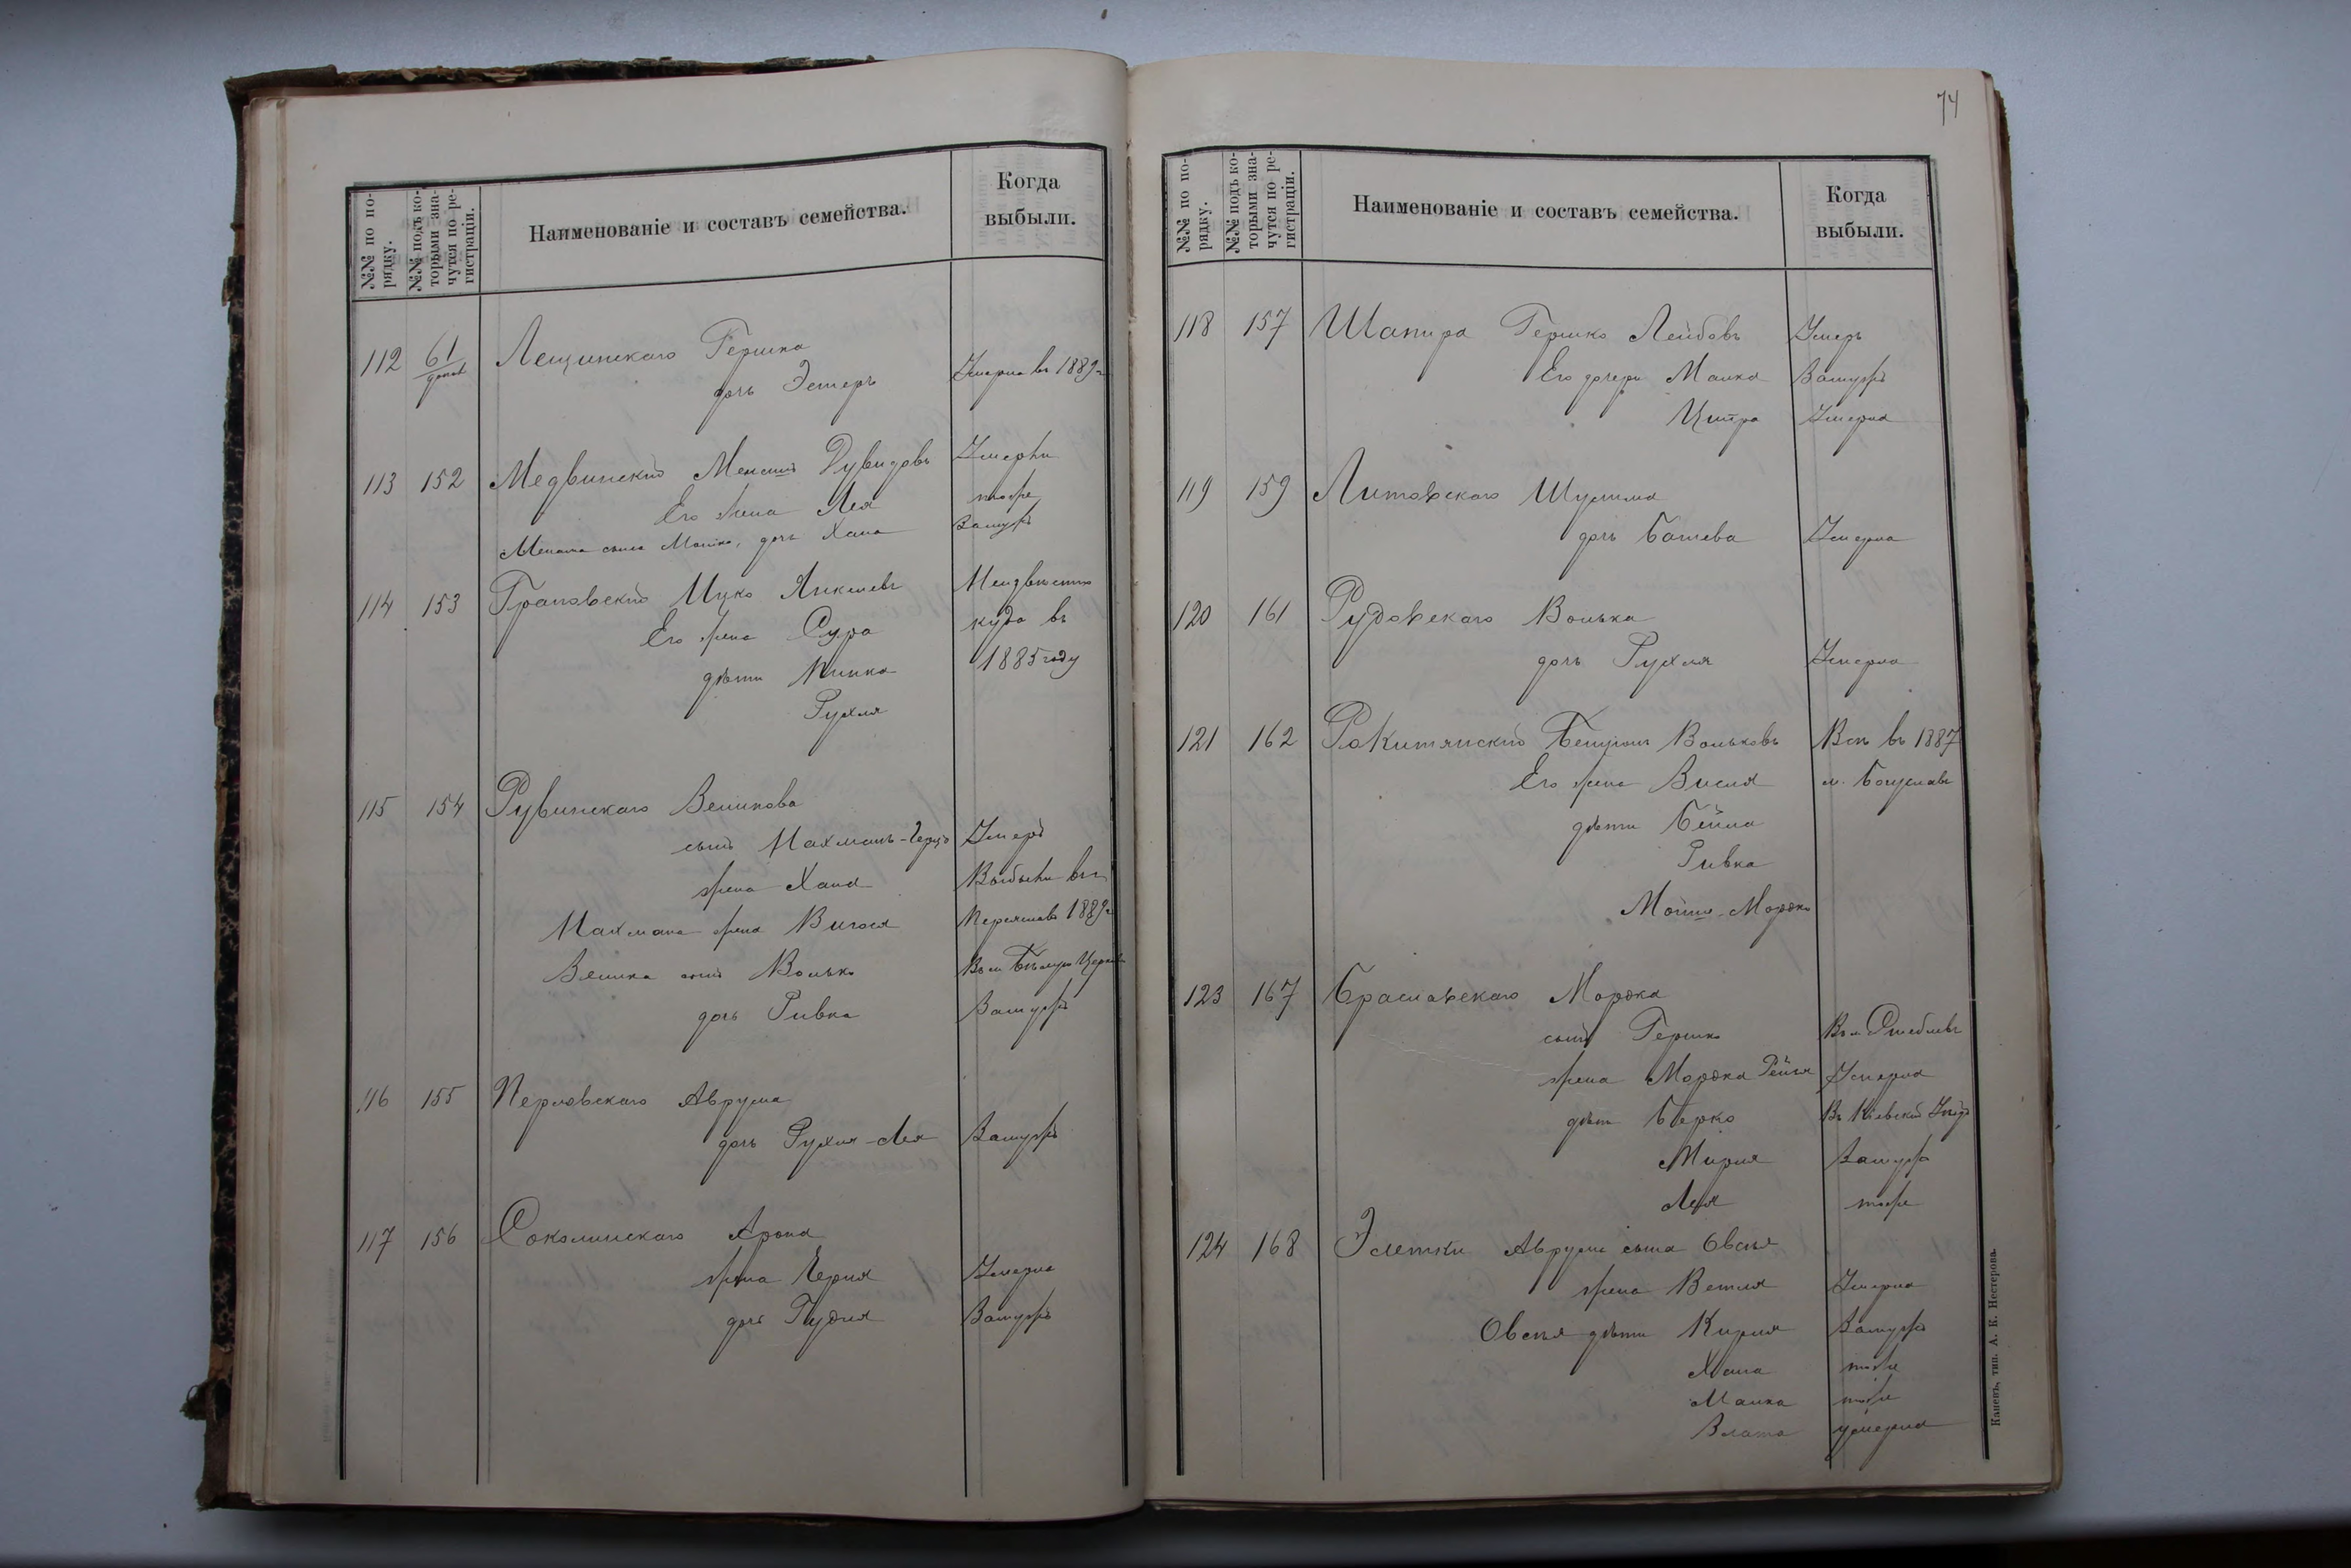 №№ по порядку.
№№ подъ которыми значутся по регистраціи.
Наименованіе и составъ семейства.
Когда выбыли.
112 61 Лещинскаго Гершка
дочь Эстеръ Умерла въ 1889 г
113 152 Медвинскій Дувидовъ Умерли
Его жена Лея тоже
сына Мошко, дочь Хана Замуж
114 153 Грановскій Ицко Янкелевъ Неизвѣстно
Его жена Сура куда въ
дѣти Минка 1885 году
Рухля
115 154 Рувинскаго Велик​ова
сынъ Нахманъ- Умеръ
жена Хана Выбыли въ г
Нахмана жена Переяславъ 1889 г
Велика сынъ Волько Въ м Бѣлую Церковь
дочь Ривка Замужъ
116 155 Перловскаго Аврума
дочь Рухля-Лея Замужъ
117 156 Соколинскаго Арона
жена Черня Умерла
дочь Гудля Замужъ
74
№№ по порядку.
№№ подъ которыми значутся по регистраціи.
Наименованіе и составъ семейства.
Когда выбыли.
118 157 Шапира Гершко Лейбовъ Умеръ
Его дочери Малка Замужъ
Ципра Умерла
119 159 Литовскаго Шулима
дочь Башева Умерла
120 161 Рудовскаго Волька
дочь Рухля Умерла
121 162 Ракитянскій Бенціонъ Вольковъ Всѣ въ 1887
Его жена м. Богуславъ
дѣти Бейла
Ривка
Мойше-Мордко
123 167 Браславскаго Мордка
сынъ Гершко Въ м. Стеблевъ
жена Мордка Рейзя Умерла
дѣти Берко Въ Кіевскій Уѣздъ
Мирля Замужъ
Лея тоже
124 168 Аврума сына Овсія
жена Ветля Умерла
Овсія дѣти Кирля Замужъ
Хана тоже
Малка тоже
Злата умерла
Каневъ, тип. А. К. Нестерова.